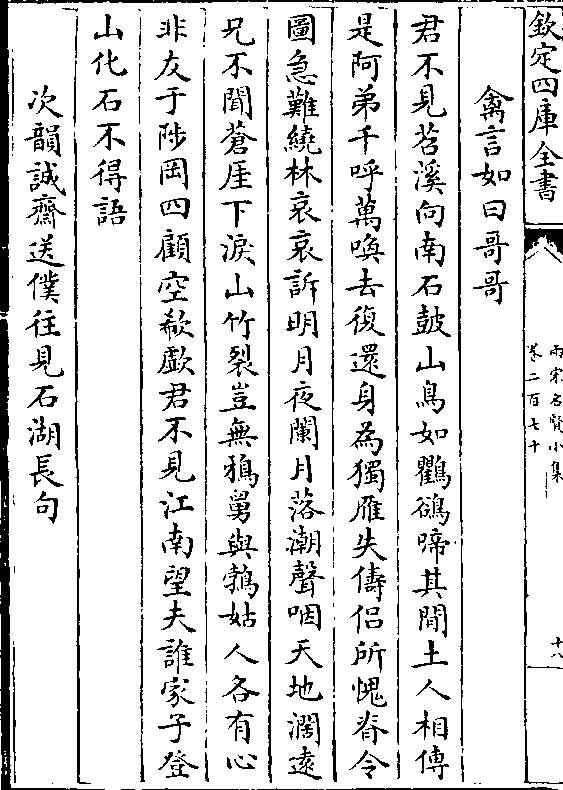 欽定四庫全書
兩宋名賢小集
卷二百七十
十八
禽言如曰哥哥
君不見苕溪向南石皷山鳥如鸜鵒啼其間土人相傳
是阿弟千呼萬喚去復還身為獨雁失儔侣所愧脊令
圖急難繞林哀哀訴明月夜闌月落潮聲咽天地濶遠
兄不聞蒼厓下淚山竹裂豈無鵶舅與鵓姑人各有心
非友于陟岡四顧空欷歔君不見江南望夫誰家子登
山化石不得語
次韻誠齋送僕往見石湖長句